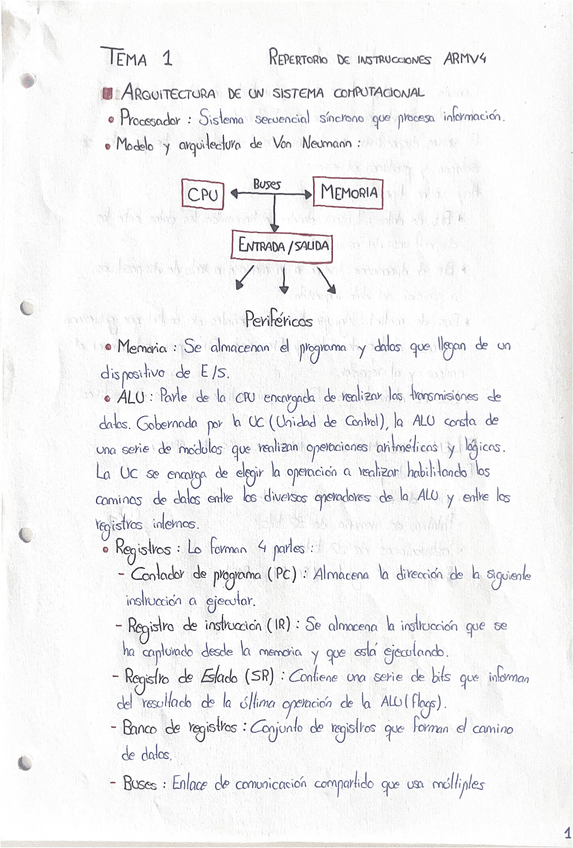 TEMA 1 REPERTORIO DE INSTRUCCIONES ARMV4
ARQUITECTURA DE UN SISTEMA COMPUTACIONAL
• Procesador : Sistema secuencial síncrono que procesa información.
• Modelo y arquitectura de Von Neumann :
CPU Buses MEMORIA
ENTRADA/SALIDA
Periféricos
• Memoria : Se almacenan el programa y datos que llegan de un
dispositivo de E/S.
• ALU : Parte de la CPU encargada de realizar las transmisiones de
datos. Gobernada por la UC (Unidad de Control), la ALU consta de
una serie de módulos que realizan operaciones aritméticas y lógicas.
La UC se encarga de elegir la operación a realizar habilitando los
caminos de datos entre los diversos operadores de la ALU y entre los
registros internos.
• Registros : Lo forman 4 partes :
- Contador de programa (PC) : Almacena la dirección de la siguiente
instrucción a ejecutar.
- Registro de instrucción (IR) : Se almacena la instrucción que se
ha capturado desde la memoria y que está ejecutando.
- Registro de Estado (SR) : Contiene una serie de bits que informan
del resultado de la última operación de la ALU (flags).
- Banco de registros : Conjunto de registros que forman el camino
de datos.
- Buses : Enlace de comunicación compartido que usa múltiples
1